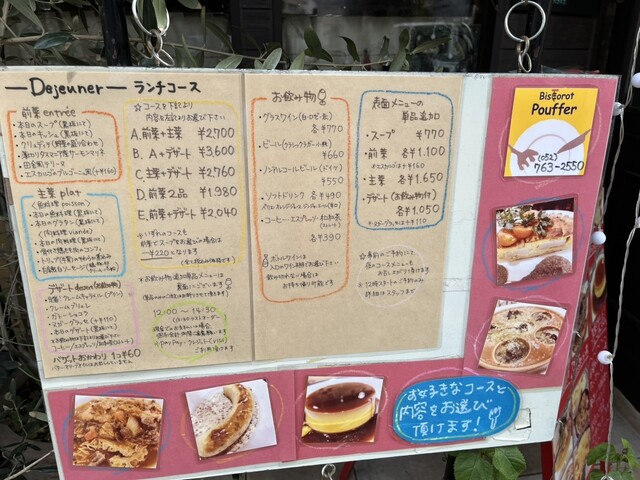 Dejeuner ランチコース
前菜 entrée
・本日のスープ(裏族にて)
・本日のキッシュ(裏族にて)
・田舎風テリーヌ
・エスカルゴ・ブルゴーニュ風(+¥160)
主菜 plat
〈魚料理 poisson〉
・本日の魚料理(裏族にて)
・本日のグラタン(裏族にて)
〈肉料理 viande〉
・本日の肉料理(裏族にて)
デザート dessert(お飲み物付)
・クレームブリュレ
・ガトーショコラ
・ヌガーグラッセ(+¥110)
・本日のデザート(裏族にて)
バゲットおかわり 1コ¥60
☆コースを下記より
内容を左記よりお選び下さい
A.前菜+主菜 ¥2,700
B. A+デザート ¥3,600
C.主菜+デザート ¥2,760
D.前菜2品 ¥1,980
E.前菜+デザート ¥2,040
※いずれのコースも
前菜でスープをお選びの場合は
-¥220となります
12:00〜14:30
お飲み物
・グラスワイン(白・ロゼ・赤)
各¥770
・ビール(クラシックラガー小瓶)
¥660
・ノンアルコールビール(ドイツ)
¥550
・ソフトドリンク 各¥490
・コーヒー・エスプレッソ・和紅茶
各¥390
☆ボトルワインは
お持ち帰り可能です
表面メニューの
単品追加
・スープ ¥770
・前菜 各¥1,100
*エスカルゴは+¥160
・主菜 各¥1,650
・デザート(お飲み物付)
各¥1,050
*ヌガーグラッセ+¥110
☆事前のご予約にて
夜のコースメニューも
お出しさせて頂けます
詳細はスタッフまで
Bistorot
Pouffer
(052)
763-2550
お好きなコースと
内容をお選び
頂けます!